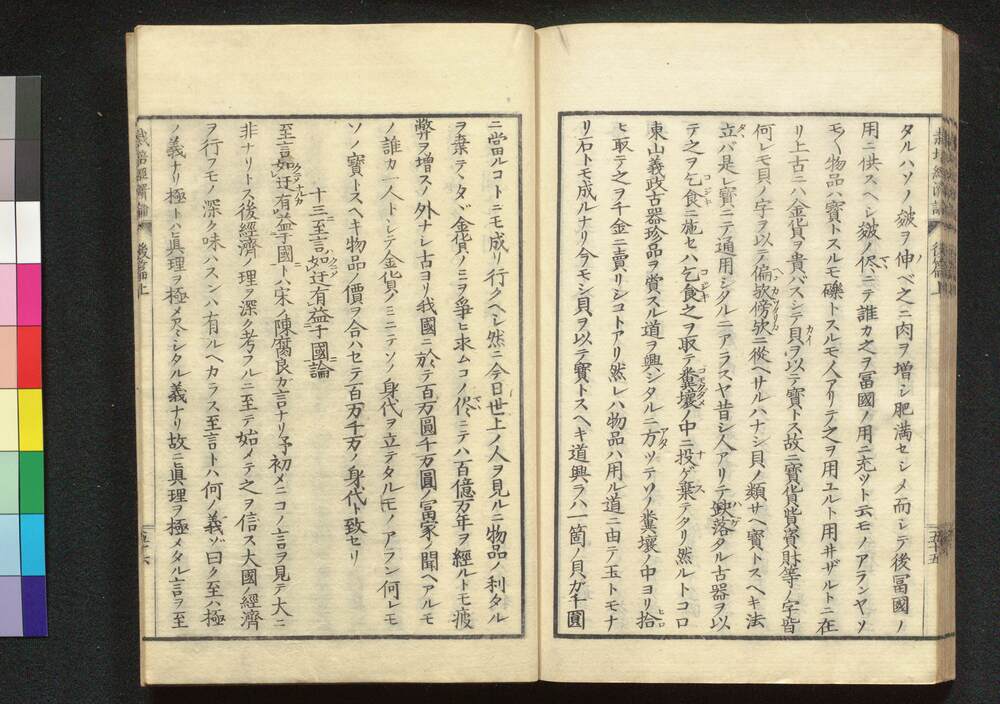 タルハソノ皴ヲ伸ベ之ニ肉ヲ増シ肥満セシメ而シテ後冨國ノ
用ニ供スヘシ皴ノ侭ニテ誰カ之ヲ冨國ノ用ニ充ツト云モノアランヤソ
モ〱物品ハ寳トスルモ礫トスルモ人アリテ之ヲ用ユルト用井ザルトニ在
リ上古ニハ金貨ヲ貴バスシテ貝ヲ以テ寳トス故ニ寳貨貲資財等ノ字皆
何レモ貝ノ字ヲ以テ偏欤傍欤ニ從ヘサルハナシ貝ノ類サヘ寳トスヘキ法
立バ是レ寳ニテ通用シタルニアラスヤ昔シ人アリテ缺落タル古器ヲ以
テ之ヲ乞食ニ施セハ乞食之ヲ取テ糞壤ノ中ニ投ゲ棄テタリ然ルトコロ
東山義政古器珍品ヲ賞スル道ヲ興シタルニ方ツテソノ糞壤ノ中ヨリ拾
ヒ取テ之ヲ千金ニ賣リシコトアリ然レハ物品ハ用ル道ニ由テ玉トモナ
リ石トモ成ルナリ今モシ貝ヲ以テ寳トスヘキ道興ラハ一箇ノ貝ガ千圓
五十五
ニ當ルコトニモ成リ行クヘシ然ニ今日世上ノ人ヲ見ルニ物品ノ利タル
ヲ棄テ丶タヾ金貨ノミヲ爭ヒ求ムコノ侭ニテハ百億万年ヲ經ルトモ疲
弊ヲ増スノ外ナシ古ヨリ我國ニ於テ百万圓千万圓ノ冨家ノ聞ヘアルモ
ノ誰カ一人トシテ金貨ノミニテソノ身代ヲ立テタルモノアラン何レモ
ソノ寳トスヘキ物品ノ價ヲ合ハセテ百万千万ノ身代ト致セリ
十三至言如迂有益于國論
至言如迂有益于國トハ宋ノ陳腐良カ言ナリ予初メニコノ言ヲ見テ大ニ
非ナリトス後經濟ノ理ヲ深ク考フルニ至テ始メテ之ヲ信ス大國ノ經濟
ヲ行フモノ深ク味ハスンハ有ルヘカラス至言トハ何ノ義ゾ曰ク至ハ極
ノ義ナリ極トハ眞理ヲ極メ尽シタル義ナリ故ニ眞理ヲ極メタル言ヲ至
栽培經濟論
後篇上
五十六